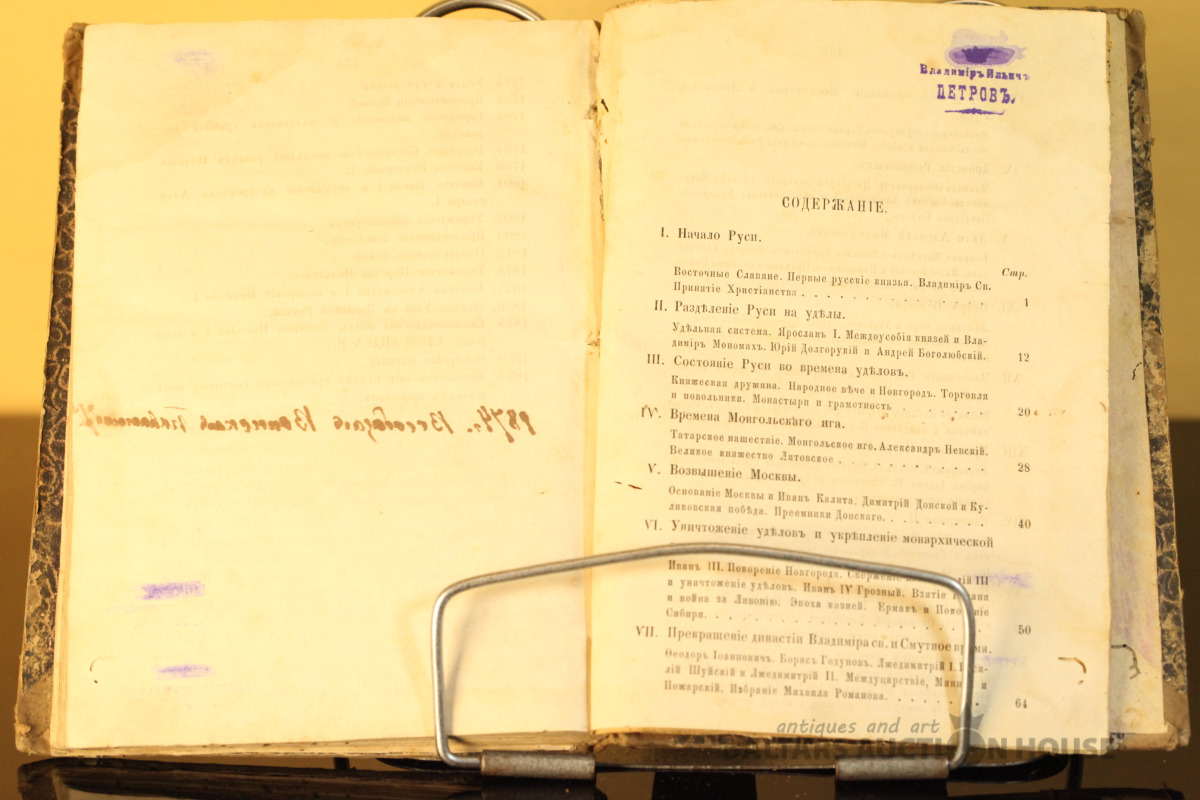 Владиміръ Ильичъ
ПЕТРОВЪ.
СОДЕРЖАНІЕ.
I. Начало Руси.
Стр.
Восточные Славяне. Первые русскіе князья. Владиміръ Св.
Принятіе Христіанства . . . . . . . . . . . . 1
II. Раздѣленіе Руси на удѣлы.
Удѣльная система. Ярославъ I. Междоусобія князей и Вла-
диміръ Мономахъ. Юрій Долгорукій и Андрей Боголюбскій. 12
III. Состояніе Руси во времена удѣловъ.
Княжеская дружина. Народное вѣче и Новгородъ. Торговля
и повольники. Монастыри и грамотность . . . . . . 20
IV. Времена Монгольскаго ига.
Татарское нашествіе. Монгольское иго. Александръ Невскій.
Великое княжество Литовское . . . . . . . . . . 28
V. Возвышеніе Москвы.
Основаніе Москвы и Иванъ Калита. Димитрій Донской и Ку-
ликовская побѣда. Преемники Донскаго. . . . . . . 40
VI. Уничтоженіе удѣловъ и укрѣпленіе монархической
Иванъ III. Покореніе Новгорода. Сверженіе III
и уничтоженіе удѣловъ. Иванъ IV Грозный. Взятіе
и война за Ливонію. Эпоха казней. Ермакъ и
Сибири. . . . . . . . . . . . . . . . 50
VII. Прекращеніе династіи Владиміра св. и Смутное время.
Ѳеодоръ Іоанновичъ. Борисъ Годуновъ. Лжедимитрій I. Васи-
лій Шуйскій и Лжедимитрій II. Междуцарствіе, Мининъ и
Пожарскій. Избраніе Михаила Романова. . . . . . . 64
antiques and art
BALTARS AUCTION HOUSE